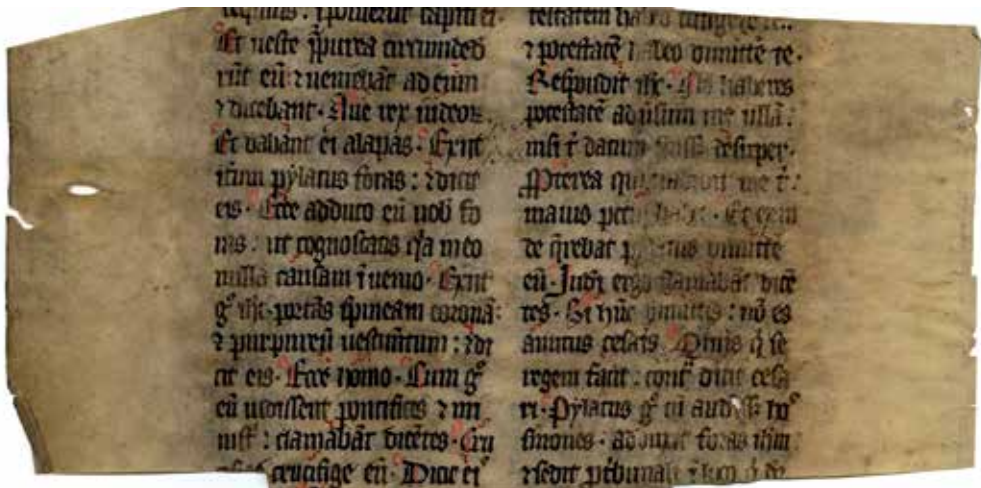 capiti ei
Et ueste p̄purea circumded
rūt eū ⁊ ueniebāt ad eum
⁊ dicebant · Aue rex iudeoꝝ
Et dabant ei alapas · Exiit
iteꝝ pylatus foras : ⁊ dicit
eis · Ecce adduco eū uob fo
ras : ut cognoscatis q̓a in eo
nullā causam īuenio · Exiit
gͦ ihc portās spineam coronā :
⁊ purpureū uestimētum : ⁊ di
cit eis · Ecce homo · Cum gͦ
eū uidissent pontifices ⁊ mi
nistͥ : clamabāt dicētes · Cru
crucifige eū · Dicit eiˢ
testatem habeo
⁊ potestatē habeo dimittē te ·
Respōdit ihc · Nō haberes
potestatē aduersum me ullā :
nisi t̄ datum desuper ·
Pterea qui me t̄ :
maius pctm habet · Et exin
de q̄rebat pylatus dimittē
eū · Iudei ergo clamabāt dicē
tes · Si hūc dimittis : nō es
amicus cesaris · Omis q̓ se
regem facit : contͣ dicit cesa
ri · Pylatus gͦ cū audiss& hoˢ
smones · adduxit foras ihm :
⁊ sedit p tbunali ī loco q̓ dr